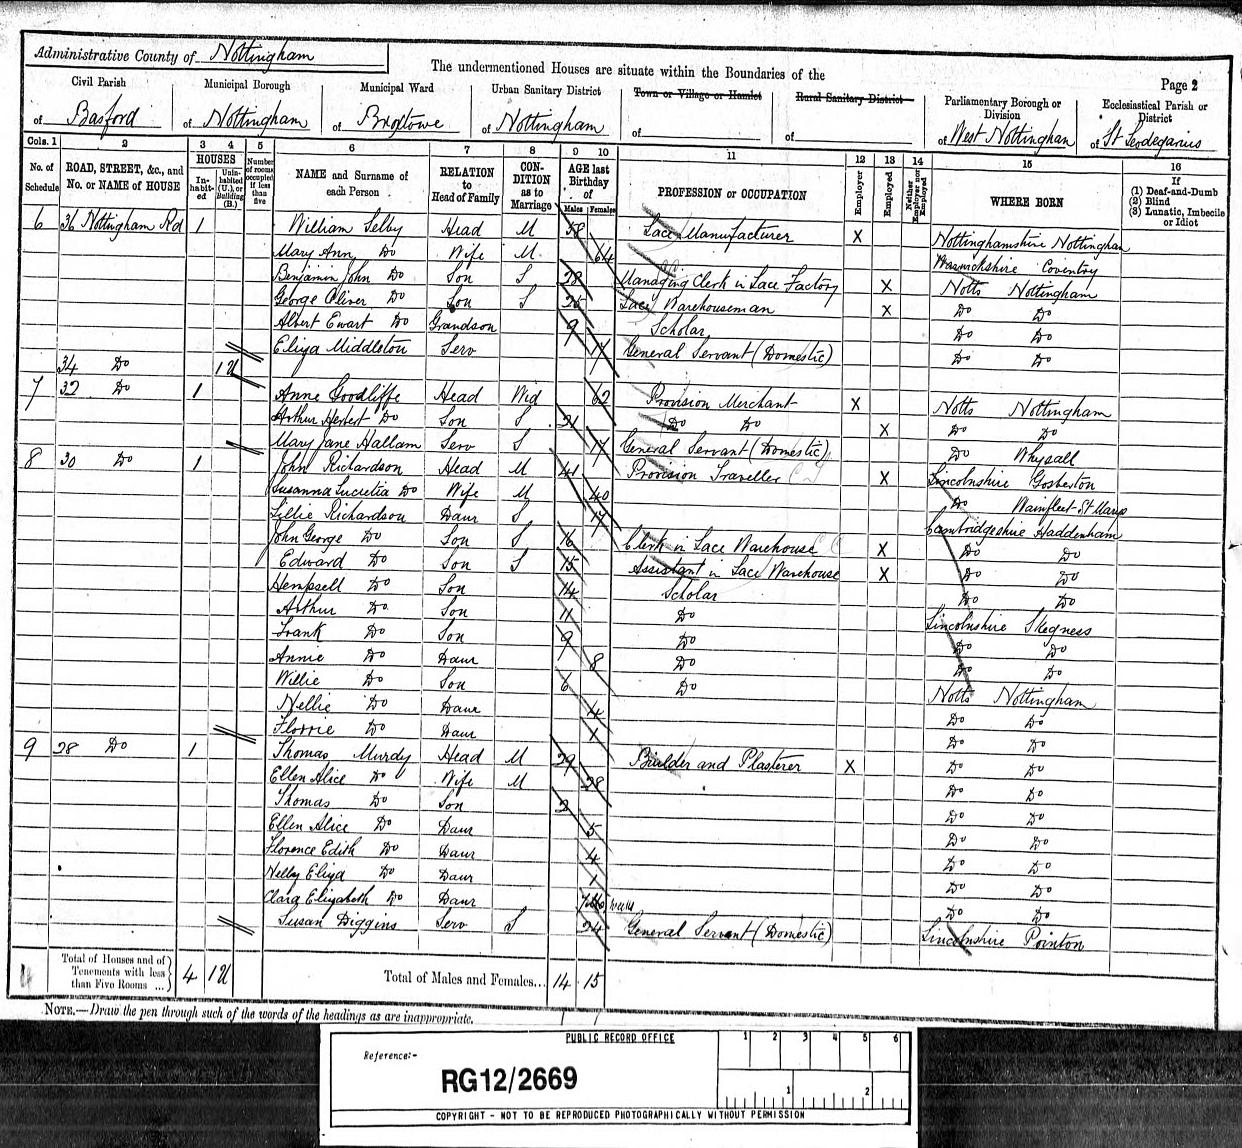 Administrative County of Nottingham
The undermentioned Houses are situate within the Boundaries of the
Page 2
Civil Parish of Basford
Municipal Borough of Nottingham
Municipal Ward of Broxtowe
Urban Sanitary District of Nottingham
Town or Village or Hamlet of
Rural Sanitary District of
Parliamentary Borough or Division of West Nottingham
Ecclesiastical Parish or District of St Leodegarius
Cols. 1 2 3 4 5 6 7 8 9 10 11 12 13 14 15 16
No. of Schedule
ROAD, STREET, &c., and No. or NAME of HOUSE
HOUSES
In-habit-ed
Unin-habited (U.), or Building (B.)
Number of rooms occupied if less than five
NAME and Surname of each Person
RELATION to Head of Family
CON-DITION as to Marriage
AGE last Birthday of
Males Females
PROFESSION or OCCUPATION
Employer
Employed
Neither Employer nor Employed
WHERE BORN
If (1) Deaf-and-Dumb (2) Blind (3) Lunatic, Imbecile or Idiot
6 36 Nottingham Rd 1 William Selby Head M 58 Lace Manufacturer X Nottinghamshire Nottingham
Mary Ann Do Wife M 64 Warwickshire Coventry
Benjamin John Do Son S 28 Managing Clerk in Lace Factory X Notts Nottingham
George Oliver Do Son S 25 Lace Warehouseman X Do Do
Albert Ewart Do Grandson 9 Scholar Do Do
Eliza Middleton Serv 17 General Servant (Domestic) Do Do
34 Do 1 U
7 32 Do 1 Anne Goodliffe Head Wid 62 Provision Merchant X Notts Nottingham
Arthur Herbert Do Son S 21 Do Do X Do Do
Mary Jane Hallam Serv S 17 General Servant (Domestic) Do Whysall
8 30 Do 1 John Richardson Head M 41 Provision Traveller X Lincolnshire Gosberton
Susanna Lucretia Do Wife M 40 Do Wainfleet St Marys
Lillie Richardson Daur S 17 Cambridgeshire Haddenham
John George Do Son S 16 Clerk in Lace Warehouse X Do Do
Edward Do Son S 15 Assistant in Lace Warehouse X Do Do
Hempsell Do Son 14 Scholar Do Do
Arthur Do Son 11 Do Lincolnshire Skegness
Frank Do Son 9 Do Do Do
Annie Do Daur 8 Do Do Do
Willie Do Son 6 Do Notts Nottingham
Nellie Do Daur 4 Do Do
Florrie Do Daur 1 Do Do
9 28 Do 1 Thomas Murdy Head M 29 Builder and Plasterer X Do Do
Ellen Alice Do Wife M 28 Do Do
Thomas Do Son 2 Do Do
Ellen Alice Do Daur 5 Do Do
Florence Edith Do Daur 4 Do Do
Nelly Eliza Do Daur 1 Do Do
Clara Elizabeth Do Daur weeks Do Do
Susan Diggins Serv S 24 General Servant (Domestic) Lincolnshire Pointon
4 Total of Houses and of Tenements with less than Five Rooms ... 4 1U Total of Males and Females... 14 15
NOTE.—Draw the pen through such of the words of the headings as are inappropriate.
PUBLIC RECORD OFFICE
Reference:-
RG12/2669
1 2 3 4 5 6
1 2
COPYRIGHT - NOT TO BE REPRODUCED PHOTOGRAPHICALLY WITHOUT PERMISSION